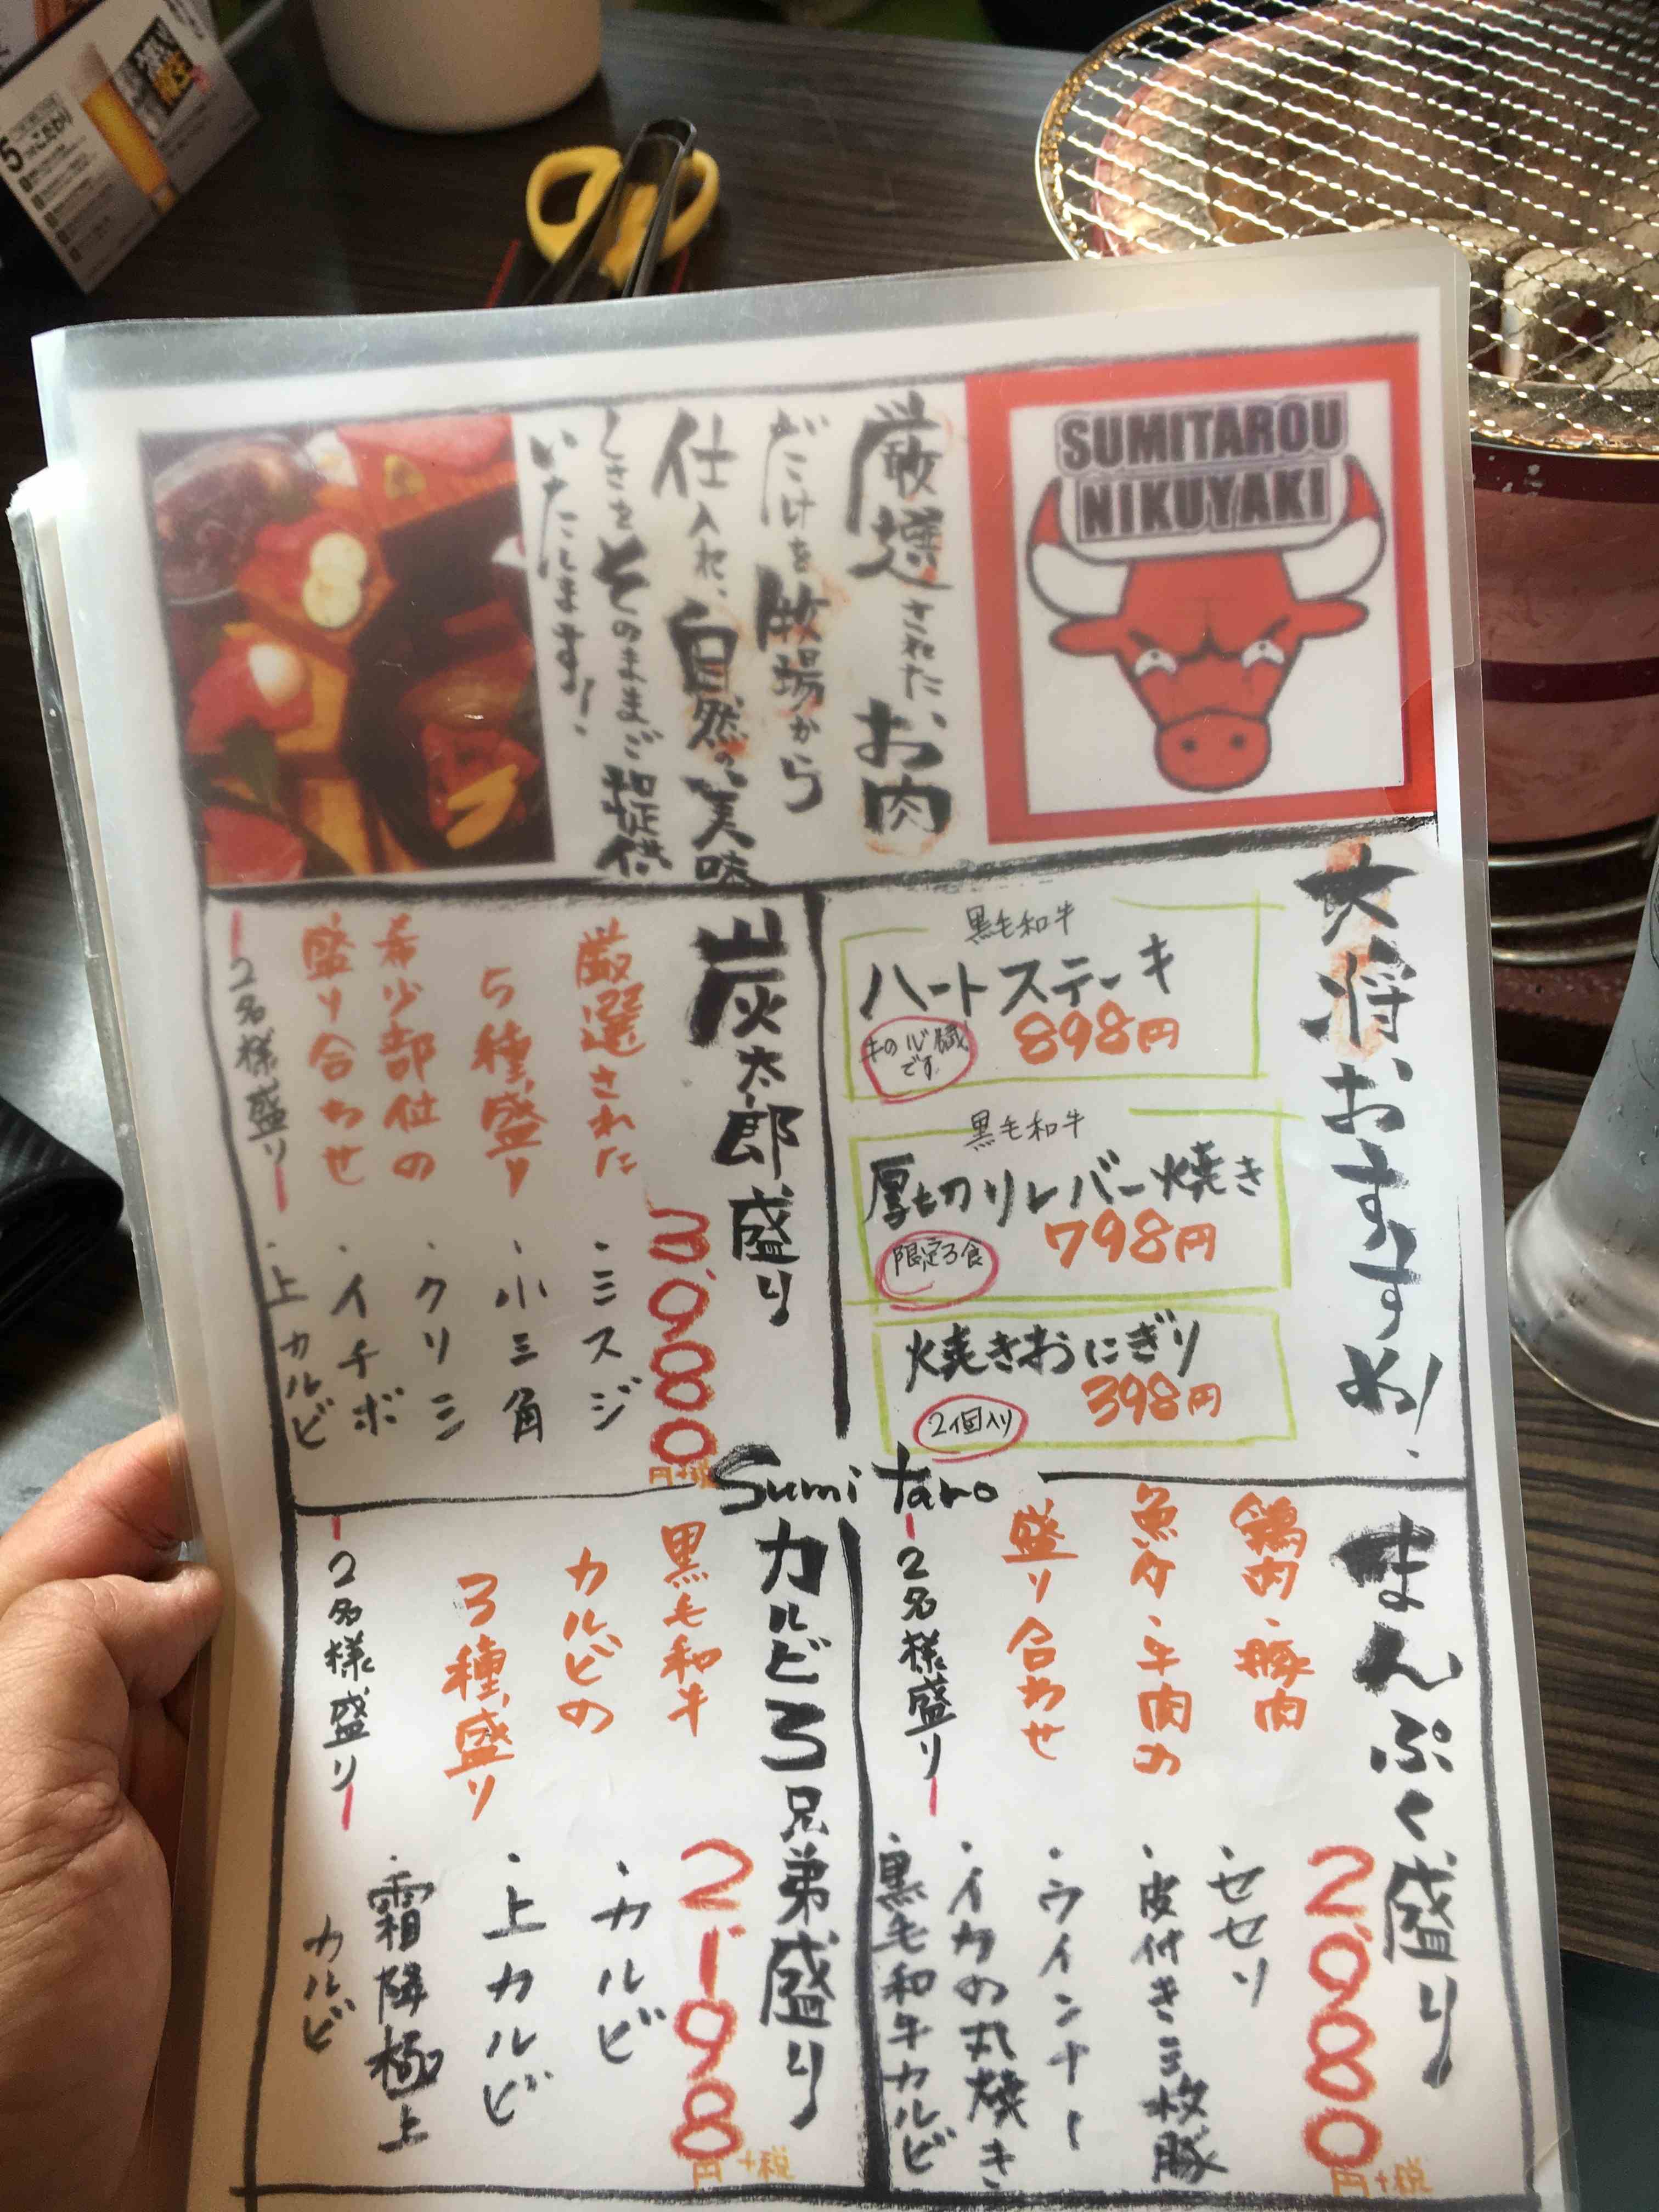 SUMITAROU
NIKUYAKI
厳選された、お肉
だけを牧場から
仕入れ、自然の美味
しさをそのままご提供
いたします!
大将、おすすめ!
黒毛和牛
ハートステーキ
898円
牛の心臓
です
黒毛和牛
厚切りレバー焼き
798円
限定3食
焼きおにぎり
398円
2個入り
炭太郎盛り
3,980
円+税
厳選された
5種盛り
希少部位の
盛り合わせ
2名様盛り
・ミスジ
・小三角
・クリミ
・イチボ
・上カルビ
Sumi taro
まんぷく盛り
2,980
円+税
鶏肉・豚肉
魚介・牛肉の
盛り合わせ
2名様盛り
・セセリ
・皮付き三枚豚
・ウインナー
・イカの丸焼き
・黒毛和牛カルビ
カルビ3兄弟盛り
2,198
円+税
黒毛和牛
カルビの
3種盛り
2名様盛り
・カルビ
・上カルビ
・霜降極上
カルビ